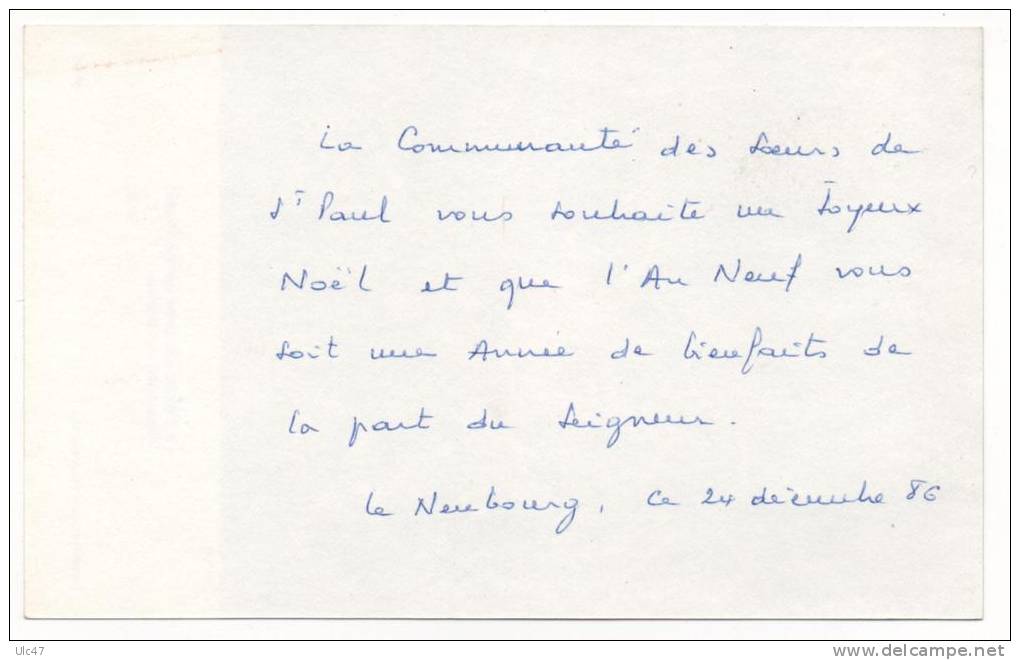 La Communauté des Sœurs de
St Paul vous souhaite un Joyeux
Noël et que l'An Neuf vous
soit une Année de bienfaits de
la part du Seigneur.
le Neubourg, ce 24 décembre 86
Ulc47
www.delcampe.net